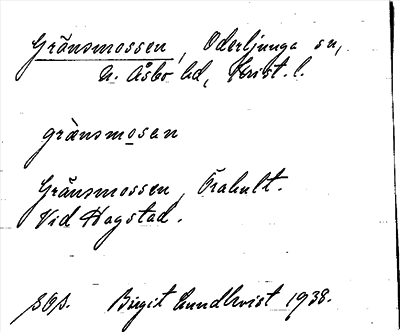 Gränsmossen, Oderljunga sn,
N. Åsbo hd, Krist. l.
gränsmosan
Gränsmossen, Örahult.
Vid Hagstad.
Birgit Lundkvist 1938.